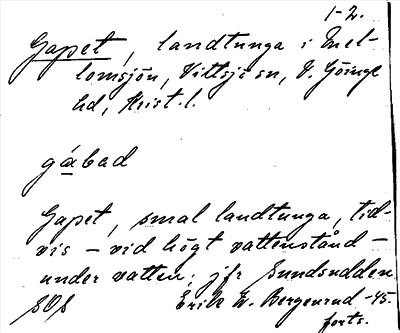 1-2.
Gapet, landtunga i Mel-
lomsjön, Vittsjö sn, V. Göinge
hd, Krist. l.
gábad
Gapet, smal landtunga, tid-
vis – vid högt vattenstånd –
under vatten; jfr Sundsudden
Erik W. Bergenrud -45.
forts.